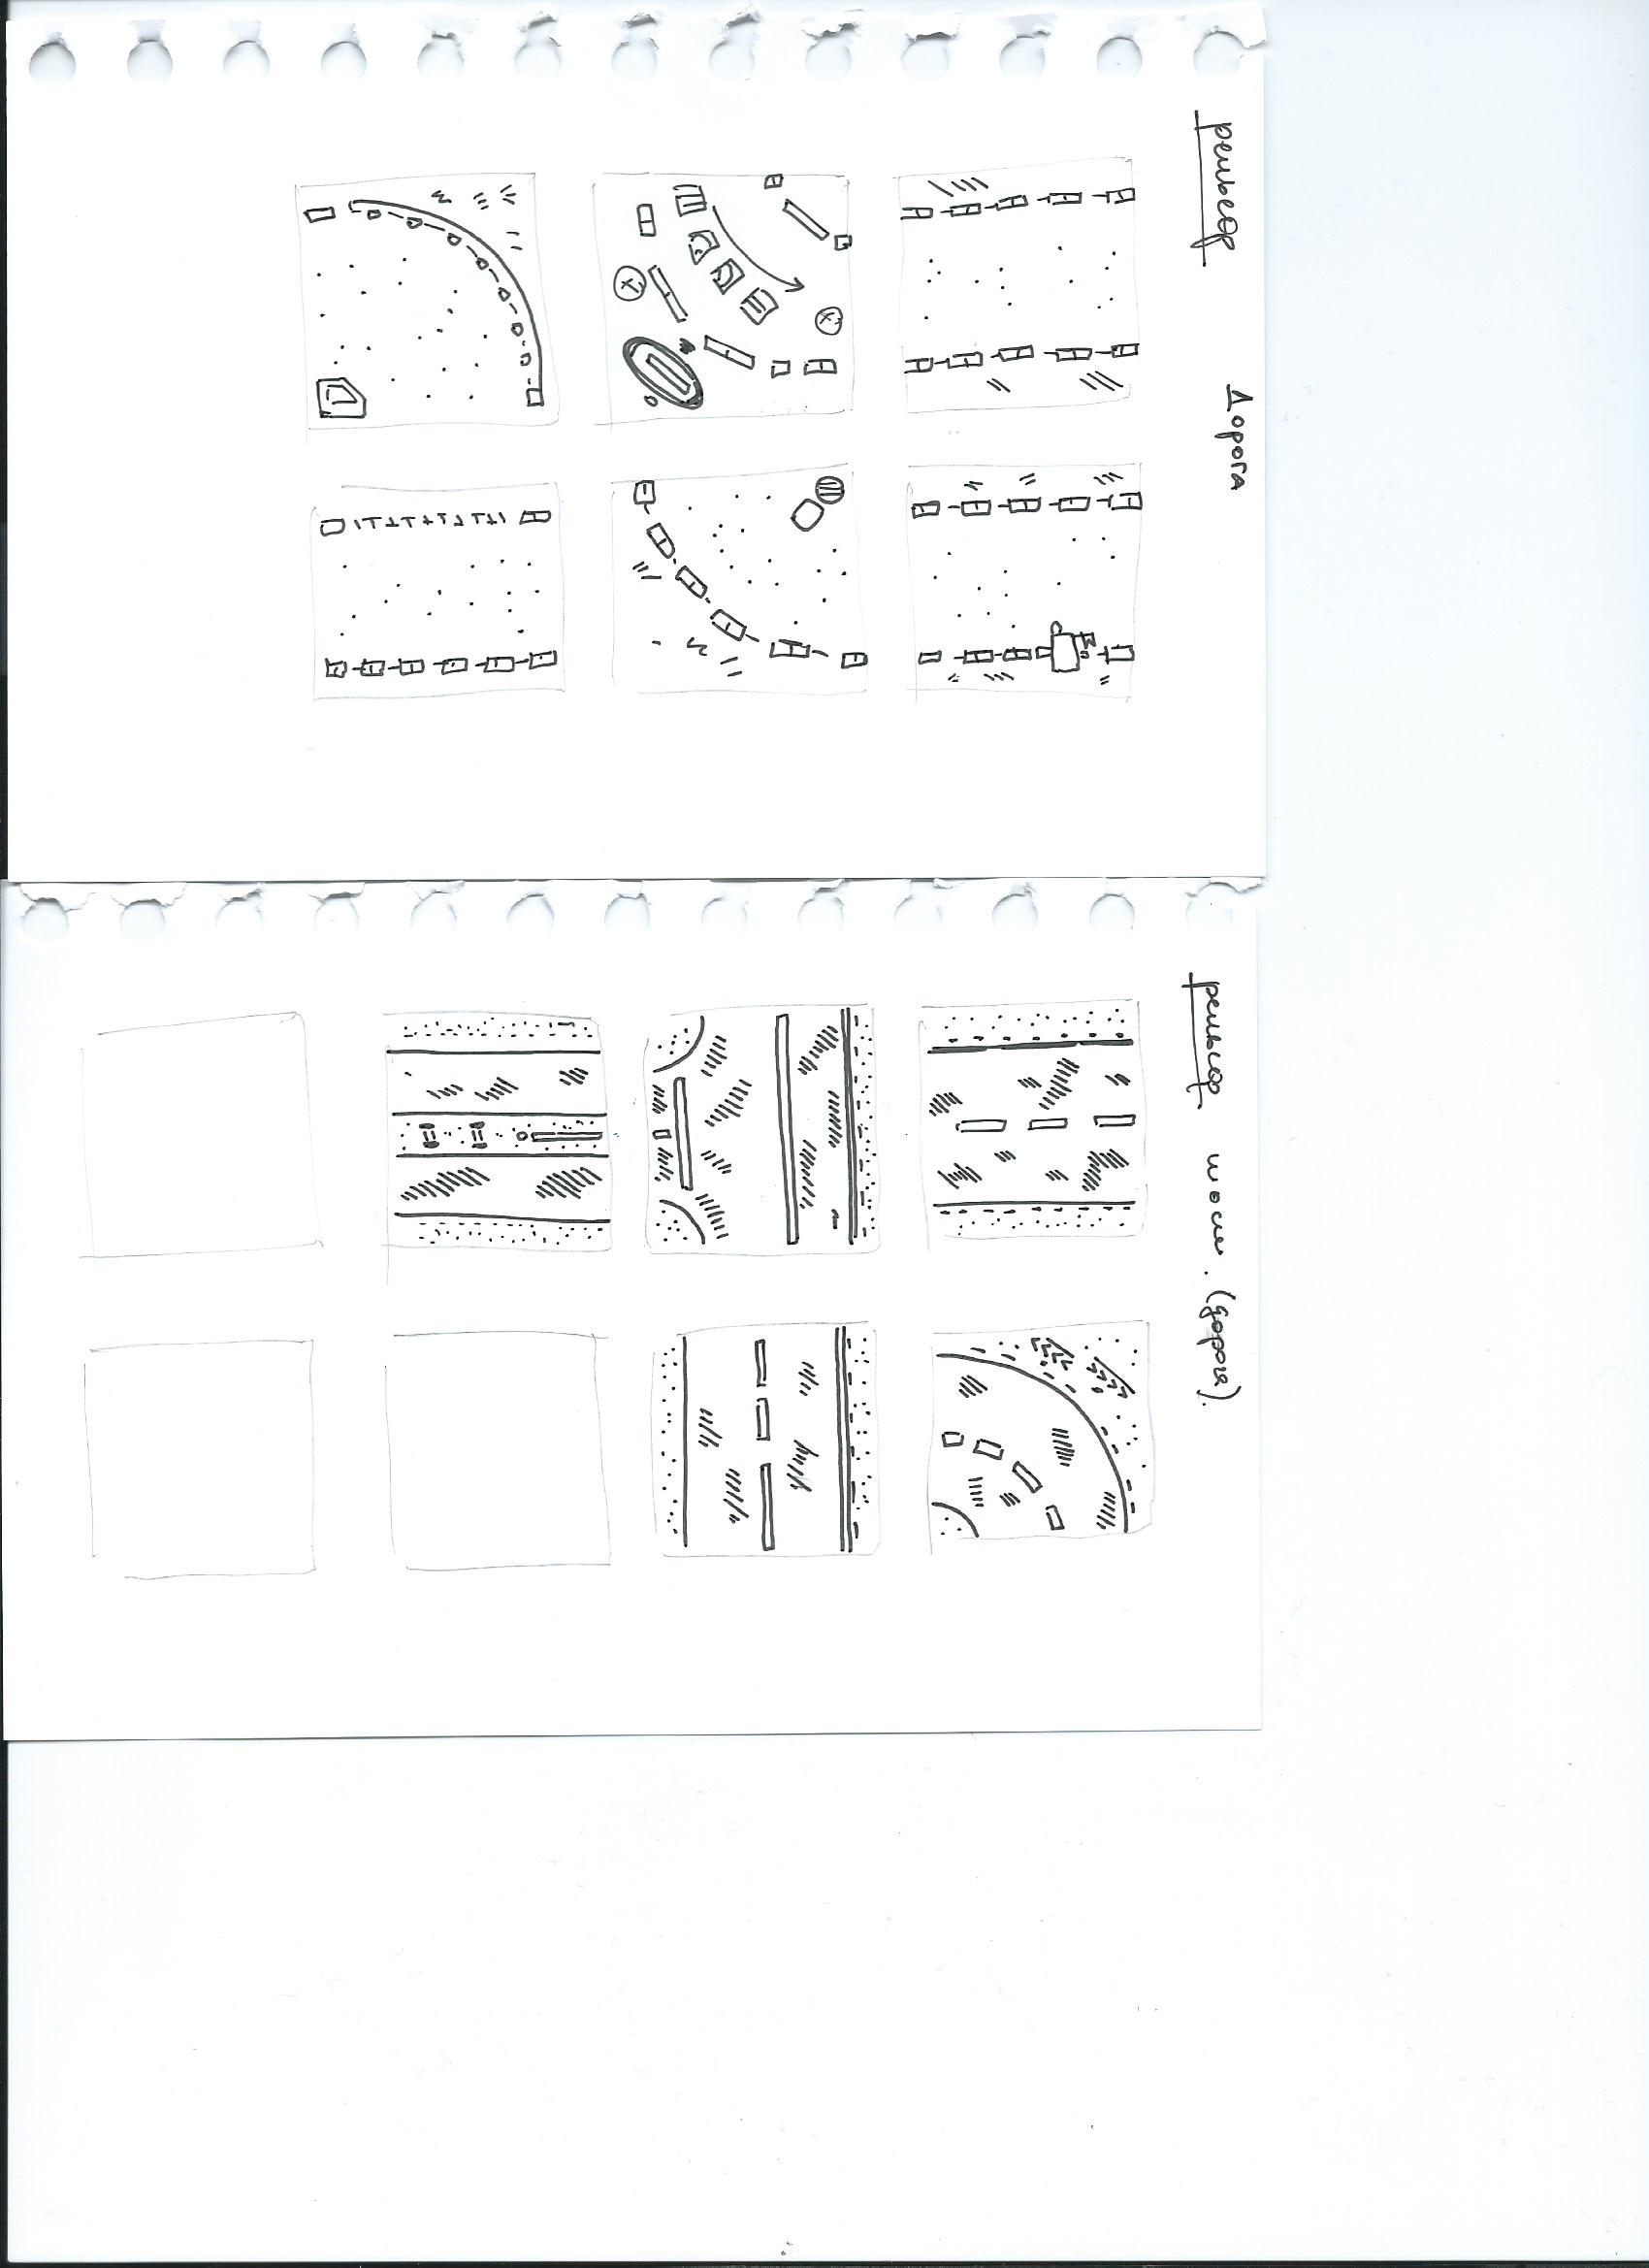 рельеф
Дорога
рельеф (дорога).